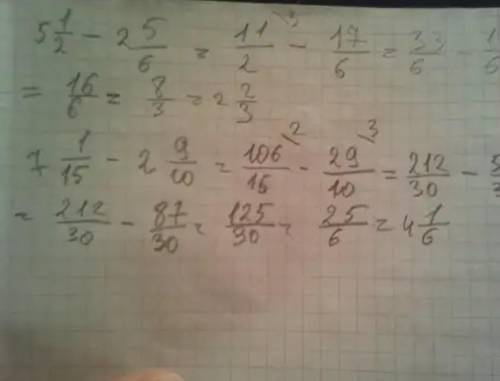 5 1/2 - 2 5/6 = 11/2 ³ - 17/6 = 33/6 -
= 16/6 = 8/3 = 2 2/3
7 1/15 - 2 9/10 = 106/15 ² - 29/10 ³ = 212/30 -
= 212/30 - 87/30 = 125/30 = 25/6 = 4 1/6